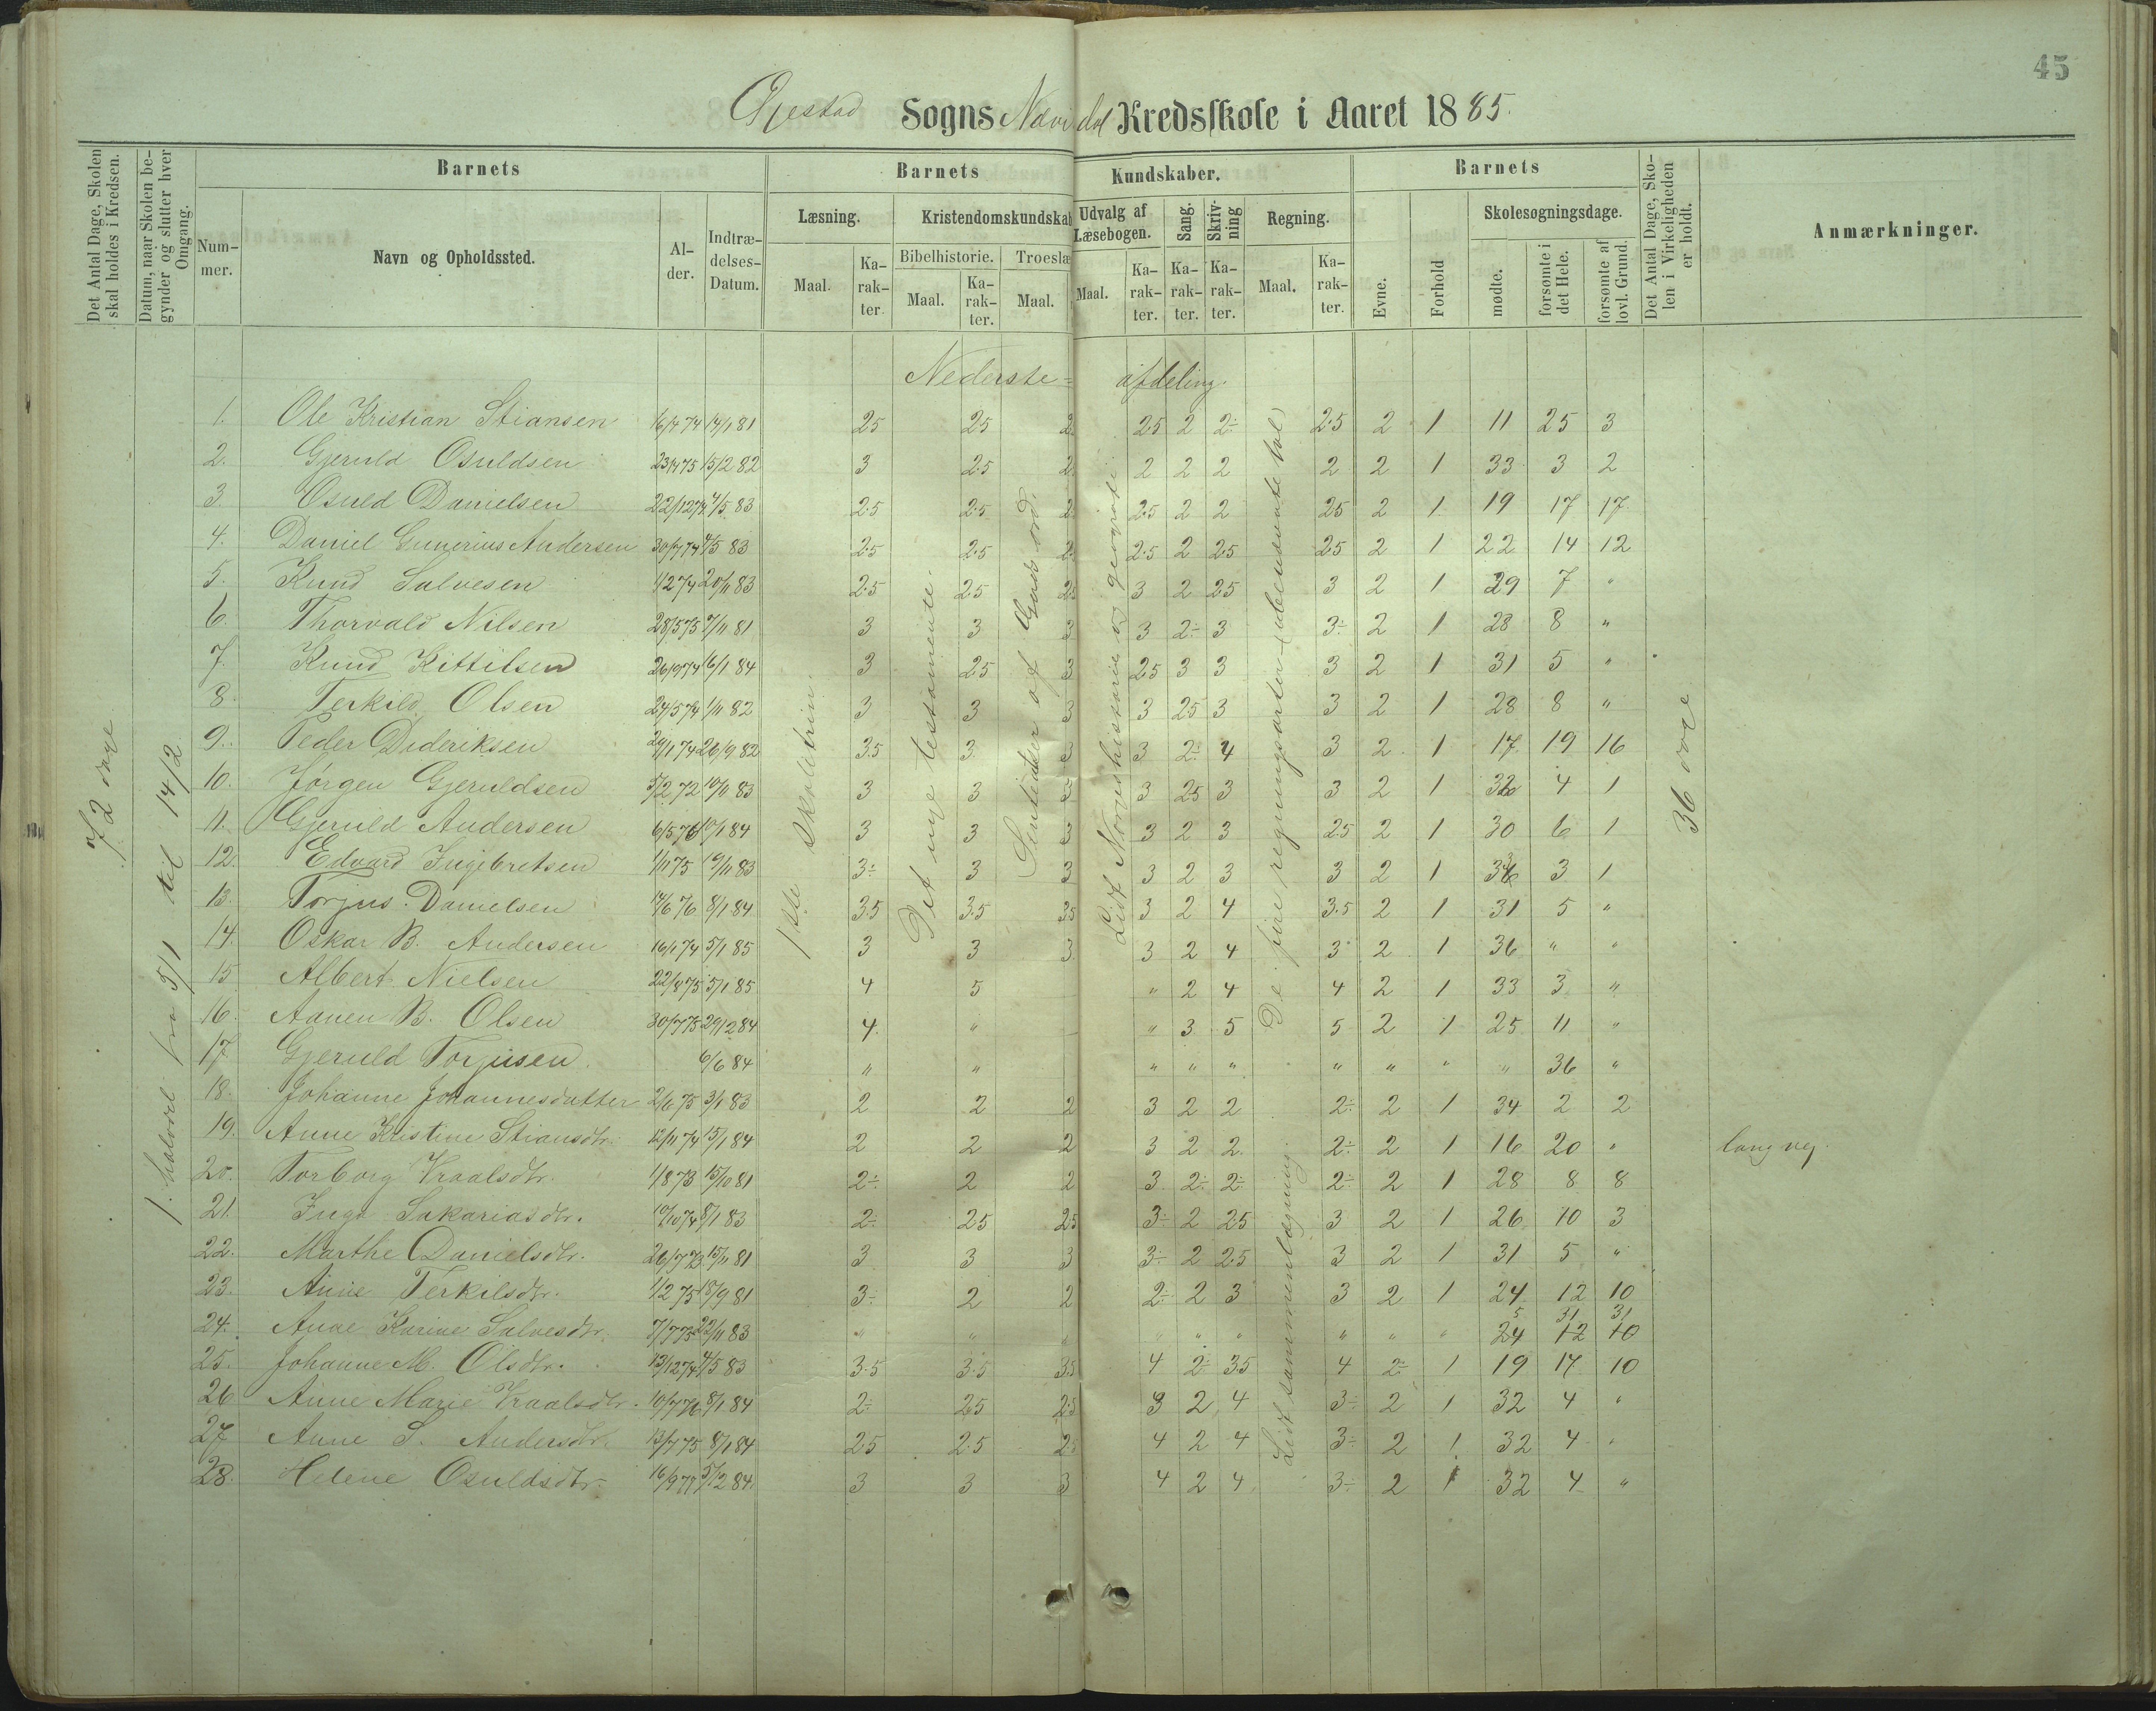 45
Øjestad Sogns Nævisdal Kredsskole i Aaret 1885.
Det Antal Dage, Skolen skal holdes i Kredsen.
Datum, naar Skolen begynder og slutter hver Omgang.
Barnets
Barnets
Kundskaber.
Barnets
Det Antal Dage, Skolen i Virkeligheden er holdt.
Anmærkninger.
Nummer.
Navn og Opholdssted.
Alder.
Indtrædelses-Datum.
Læsning.
Kristendomskundskab
Udvalg af Læsebogen.
Sang.
Skrivning
Regning.
Evne.
Forhold
Skolesøgningsdage.
Bibelhistorie.
Troeslæ
Maal.
Karakter.
Maal.
Karakter.
Maal.
Maal.
Karakter.
Karakter.
Karakter.
Maal.
Karakter.
mødte.
forsømte i det Hele.
forsømte af lovl. Grund.
72 dage
1. halvdel fra 5/1 til 14/2
1ste skoletrin
Det nye testamente.
Sentidter af Guds ord.
Lidt Norgeshistorie og geografi
De fire regningsarter (ubenævnte tal)
Lidt sammenlægning.
36 dage
Nederste= afdeling.
1. Ole Kristian Stiansen 16/4 74 14/1 81 25 25 2 25 2 2÷ 2.5 2 1 11 25 3
2. Gjeruld Osuldsen 23/4 75 15/2 82 3 2.5 2 2 2 2 2 2 1 33 3 2
3. Osuld Danielsen 22/12 74 4/5 83 2.5 2.5 2 2.5 2 2 25 2 1 19 17 17
4. Daniel Gunerius Andersen 30/7 74 4/5 83 2.5 2.5 2 2.5 2 2.5 25 2 1 22 14 12
5. Knud Salvesen 1/2 74 20/11 83 2.5 25 25 3 2 25 3 2 1 29 7 "
6. Thorvald Nilsen 28/5 75 7/11 81 3 3 3 3 2÷ 3 3÷ 2 1 28 8 "
7. Knud Kittilsen 26/9 74 16/1 84 3 25 3 25 3 3 3 2 1 31 5 "
8. Terkild Olsen 24/5 74 1/11 82 3 3 3 3 25 3 3 2 1 28 8 "
9. Peder Dideriksen 29/1 74 26/9 82 3.5 3 3 3 2÷ 4 3 2 1 17 19 16
10. Jørgen Gjeruldsen 5/2 72 10/11 83 3 3 3 3 25 3 3 2 1 32 4 1
11. Gjeruld Andersen 6/5 76 10/1 84 3 3 3 3 2 3 2.5 2 1 30 6 1
12. Edvard Ingebretsen 1/11 75 19/11 83 3÷ 3 3 3 2 3 3 2 1 33 3 1
13. Torjus Danielsen 14/6 76 8/1 84 3.5 3.5 35 3 2 4 3.5 2 1 31 5 "
14. Oskar B. Andersen 16/1 74 5/1 85 3 3 3 3 2 4 3 2 1 36 " "
15. Albert Nielsen 22/8 75 5/1 85 4 5 " 2 4 4 2 1 33 3 "
16. Aanen B. Olsen 30/7 75 29/2 84 4 " " 3 5 5 2 1 25 11 "
17. Gjeruld Torjusen 6/6 84 " " " " " " " " " 36 "
18. Johanne Johannesdatter 2/6 75 3/1 83 2 2 2 3 2 2 2÷ 2 1 34 2 2
19. Anne Kristine Stiansdtr. 12/11 74 15/1 84 2 2 2 3 2 2 2÷ 2 1 16 20 " lang vej
20. Torborg Vraalsdtr. 1/8 73 15/10 81 2÷ 2 2 3 2÷ 2÷ 2÷ 2 1 28 8 8
21. Inga Sakariasdtr. 10/10 74 8/1 83 2÷ 25 25 3÷ 2 2.5 3 2 1 26 10 3
22. Marthe Danielsdtr. 26/7 73 15/11 81 3 3 3 3÷ 2 2.5 3 2 1 31 5 "
23. Anne Terkilsdtr. 1/2 75 18/9 81 3÷ 2 2 2÷ 2 3 3 2 1 24 12 10
24. Anne Karine Salvesdtr. 7/7 73 22/11 83 " " " " " " " " " 5 31 31
24 12 10
25. Johanne M. Olsdtr. 13/12 74 4/5 83 3.5 3.5 35 4 2÷ 35 4 2÷ 1 19 17 10
26. Anne Marie Vraalsdtr. 10/7 76 8/1 84 2÷ 25 25 3 2 4 3÷ 2 1 32 4 "
27. Anne S. Andersdtr. 13/7 75 8/1 84 25 2.5 2 4 2 4 3÷ 2 1 32 4 "
28. Helene Osuldsdtr. 16/9 77 5/2 84 3 3 3 4 2 4 3÷ 2 1 32 4 "